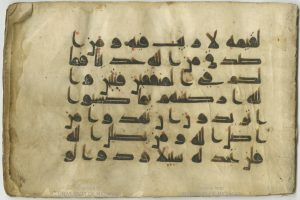 لقيمه لا ريب فيه و من ا
صدق من الله حديثا فما
لكم في المنفقين فئتين وا
لله اركسهم بما كسبوا
اتريدون ان تهدوا من
اضل الله و من يضلل الله
فلن تجد له سبيلا ودوا لو